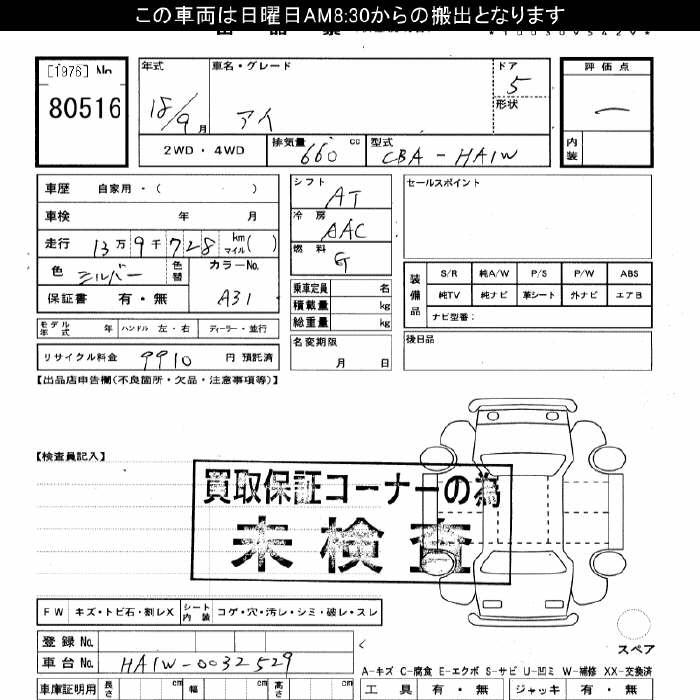 この車両は日曜日AM8:30からの搬出となります
[1976] No.
80516
年式 18/9 月
車名・グレード アイ
ドア 5
形状
評価点 ー
内装
2WD・4WD
排気量 660 cc
型式 CBA-HA1W
車歴 自家用・( )
車検 年 月
走行 13万9千728 km マイル( )
色 シルバー 色替
カラーNo. A31
保証書 有・無
モデル年式 年 ハンドル 左・右 ディーラー・並行
リサイクル料金 9910 円 預託済
シフト AT
冷房 AAC
燃料 G
乗車定員 名
積載量 kg
総重量 kg
名変期限 月 日
セールスポイント
装備品
S/R 純A/W P/S P/W ABS
純TV 純ナビ 革シート 外ナビ エアB
ナビ型番:
後日品
【出品店申告欄(不良箇所・欠品・注意事項等)】
【検査員記入】
買取保証コーナーの為
未検査
FW キズ・トビ石・割レX シート内装 コゲ・穴・汚レ・シミ・破レ・スレ
登録No.
車台No. HA1W-0032529
スペア
A-キズ C-腐食 E-エクボ S-サビ U-凹ミ W-補修 XX-交換済
車庫証明用 長さ cm 幅 cm 高さ cm
工具 有・無 ジャッキ 有・無